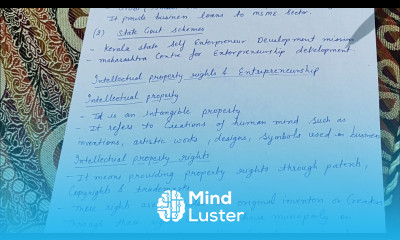 - It provids business loans to MSME sector.
(3) State Govt schemes
- Kerala state Self Enterpreneur Development mission
- maharashtra Centre for Enterpreneurship development
Intellectual property rights & Entrepreneurship
Intellectual property
- Id is an intangible property
- It refers to Creations of human mind such as
inventions, artistic works, designs, symbols used in business
Intellectual property rights
- It means providing property rights through patents,
Copyrights & trademarks
- These rights original inventor or Creator
Mind
Luster